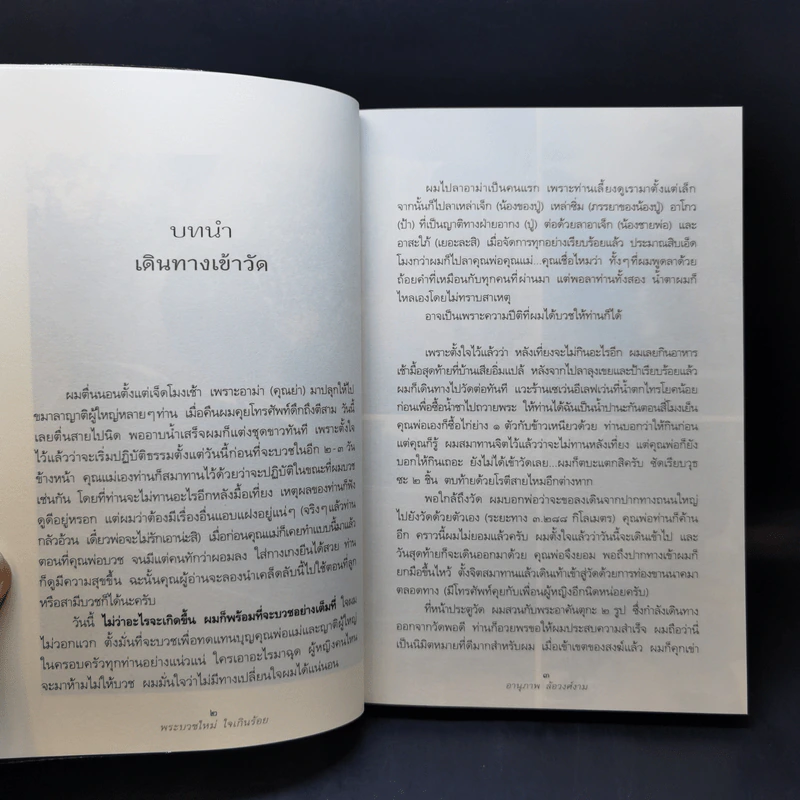 บทนำ
เดินทางเข้าวัด
ผมตื่นนอนตั้งแต่เจ็ดโมงเช้า เพราะอาม่า (คุณย่า) มาปลุกให้ไป
ขมาลาญาติผู้ใหญ่หลายๆท่าน เมื่อคืนผมคุยโทรศัพท์ดึกถึงตีสาม วันนี้
เลยตื่นสายไปนิด พออาบน้ำเสร็จผมก็แต่งชุดขาวทันที เพราะตั้งใจ
ไว้แล้วว่าจะเริ่มปฏิบัติธรรมตั้งแต่วันนี้ก่อนที่จะบวชในอีก ๒-๓ วัน
ข้างหน้า คุณแม่เองท่านก็สมาทานไว้ด้วยว่าจะปฏิบัติในขณะที่ผมบวช
เช่นกัน โดยที่ท่านจะไม่ทานอะไรอีกหลังมื้อเที่ยง เหตุผลของท่านก็ฟัง
ดูดีอยู่หรอก แต่ผมว่าต้องมีเรื่องอื่นแอบแฝงอยู่แน่ๆ (จริงๆแล้วท่าน
กลัวอ้วน เดี๋ยวพ่อจะไม่รักเอาน่ะสิ) เมื่อก่อนคุณแม่ก็เคยทำแบบนี้มาแล้ว
ตอนที่คุณพ่อบวช จนมีแต่คนทักว่าผอมลง ใส่กางเกงยีนได้สวย ท่าน
ก็ดูมีความสุขขึ้น ฉะนั้นคุณผู้อ่านจะลองนำเคล็ดลับนี้ไปใช้ตอนที่ลูก
หรือสามีบวชก็ได้นะครับ
วันนี้ ไม่ว่าอะไรจะเกิดขึ้น ผมก็พร้อมที่จะบวชอย่างเต็มที่ ใจผม
ไม่วอกแวก ตั้งมั่นที่จะบวชเพื่อทดแทนบุญคุณพ่อแม่และญาติผู้ใหญ่
ในครอบครัวทุกท่านอย่างแน่วแน่ ใครเอาอะไรมาฉุด ผู้หญิงคนไหน
จะมาห้ามไม่ให้บวช ผมมั่นใจว่าไม่มีทางเปลี่ยนใจผมได้แน่นอน
๒
พระบวชใหม่ ใจเกินร้อย
ผมไปลาอาม่าเป็นคนแรก เพราะท่านเลี้ยงดูเรามาตั้งแต่เล็ก
จากนั้นก็ไปลาเหล่าเจ็ก (น้องของปู่) เหล่าซิ่ม (ภรรยาของน้องปู่) อาโกว
(ป้า) ที่เป็นญาติทางฝ่ายอากง (ปู่) ต่อด้วยลาอาเจ็ก (น้องชายพ่อ) และ
อาสะใภ้ (เยอะละสิ) เมื่อจัดการทุกอย่างเรียบร้อยแล้ว ประมาณสิบเอ็ด
โมงกว่าผมก็ไปลาคุณพ่อคุณแม่...คุณเชื่อไหมว่า ทั้งๆที่ผมพูดลาด้วย
ถ้อยคำที่เหมือนกับทุกคนที่ผ่านมา แต่พอลาท่านทั้งสอง น้ำตาผมก็
ไหลเองโดยไม่ทราบสาเหตุ
อาจเป็นเพราะความปีติที่ผมได้บวชให้ท่านก็ได้
เพราะตั้งใจไว้แล้วว่า หลังเที่ยงจะไม่กินอะไรอีก ผมเลยกินอาหาร
เช้ามื้อสุดท้ายที่บ้านเสียอิ่มแปล้ หลังจากไปลาลุงเขยและป้าเรียบร้อยแล้ว
ผมก็เดินทางไปวัดต่อทันที แวะร้านเซเว่นอีเลฟเว่นที่น้ำตกไทรโยคน้อย
ก่อนเพื่อซื้อน้ำชาไปถวายพระ ให้ท่านได้ฉันเป็นน้ำปานะกันตอนสี่โมงเย็น
คุณพ่อเองก็ซื้อไก่ย่าง ๑ ตัวกับข้าวเหนียวด้วย ท่านบอกว่าให้กินก่อน
แต่คุณก็รู้ ผมสมาทานจิตไว้แล้วว่าจะไม่ทานหลังเที่ยง แต่คุณพ่อก็ยัง
บอกให้กินเถอะ ยังไม่ได้เข้าวัดเลย...ผมก็ตบะแตกสิครับ ซัดเรียบวุธ
ซะ ๒ ชิ้น ตบท้ายด้วยโรตีสายไหมอีกต่างหาก
พอใกล้ถึงวัด ผมบอกพ่อว่าจะขอลงเดินจากปากทางถนนใหญ่
ไปยังวัดด้วยตัวเอง (ระยะทาง ๓.๒๘๘ กิโลเมตร) คุณพ่อท่านก็ค้าน
อีก คราวนี้ผมไม่ยอมแล้วครับ ผมตั้งใจแล้วว่าวันนี้จะเดินเข้าไป และ
วันสุดท้ายก็จะเดินออกมาด้วย คุณพ่อจึงยอม พอถึงปากทางเข้าผมก็
ยกมือขึ้นไหว้ ตั้งจิตสมาทานแล้วเดินเท้าเข้าสู่วัดด้วยการท่องขานนาคมา
ตลอดทาง (มีโทรศัพท์คุยกับเพื่อนผู้หญิงอีกนิดหน่อยครับ)
ที่หน้าประตูวัด ผมสวนกับพระอาคันตุกะ ๒ รูป ซึ่งกำลังเดินทาง
ออกจากวัดพอดี ท่านก็อวยพรขอให้ผมประสบความสำเร็จ ผมถือว่านี่
เป็นนิมิตหมายที่ดีมากสำหรับผม เมื่อเข้าเขตของสงฆ์แล้ว ผมก็คุกเข่า
๓
อานุภาพ ล้อวงศ์งาม